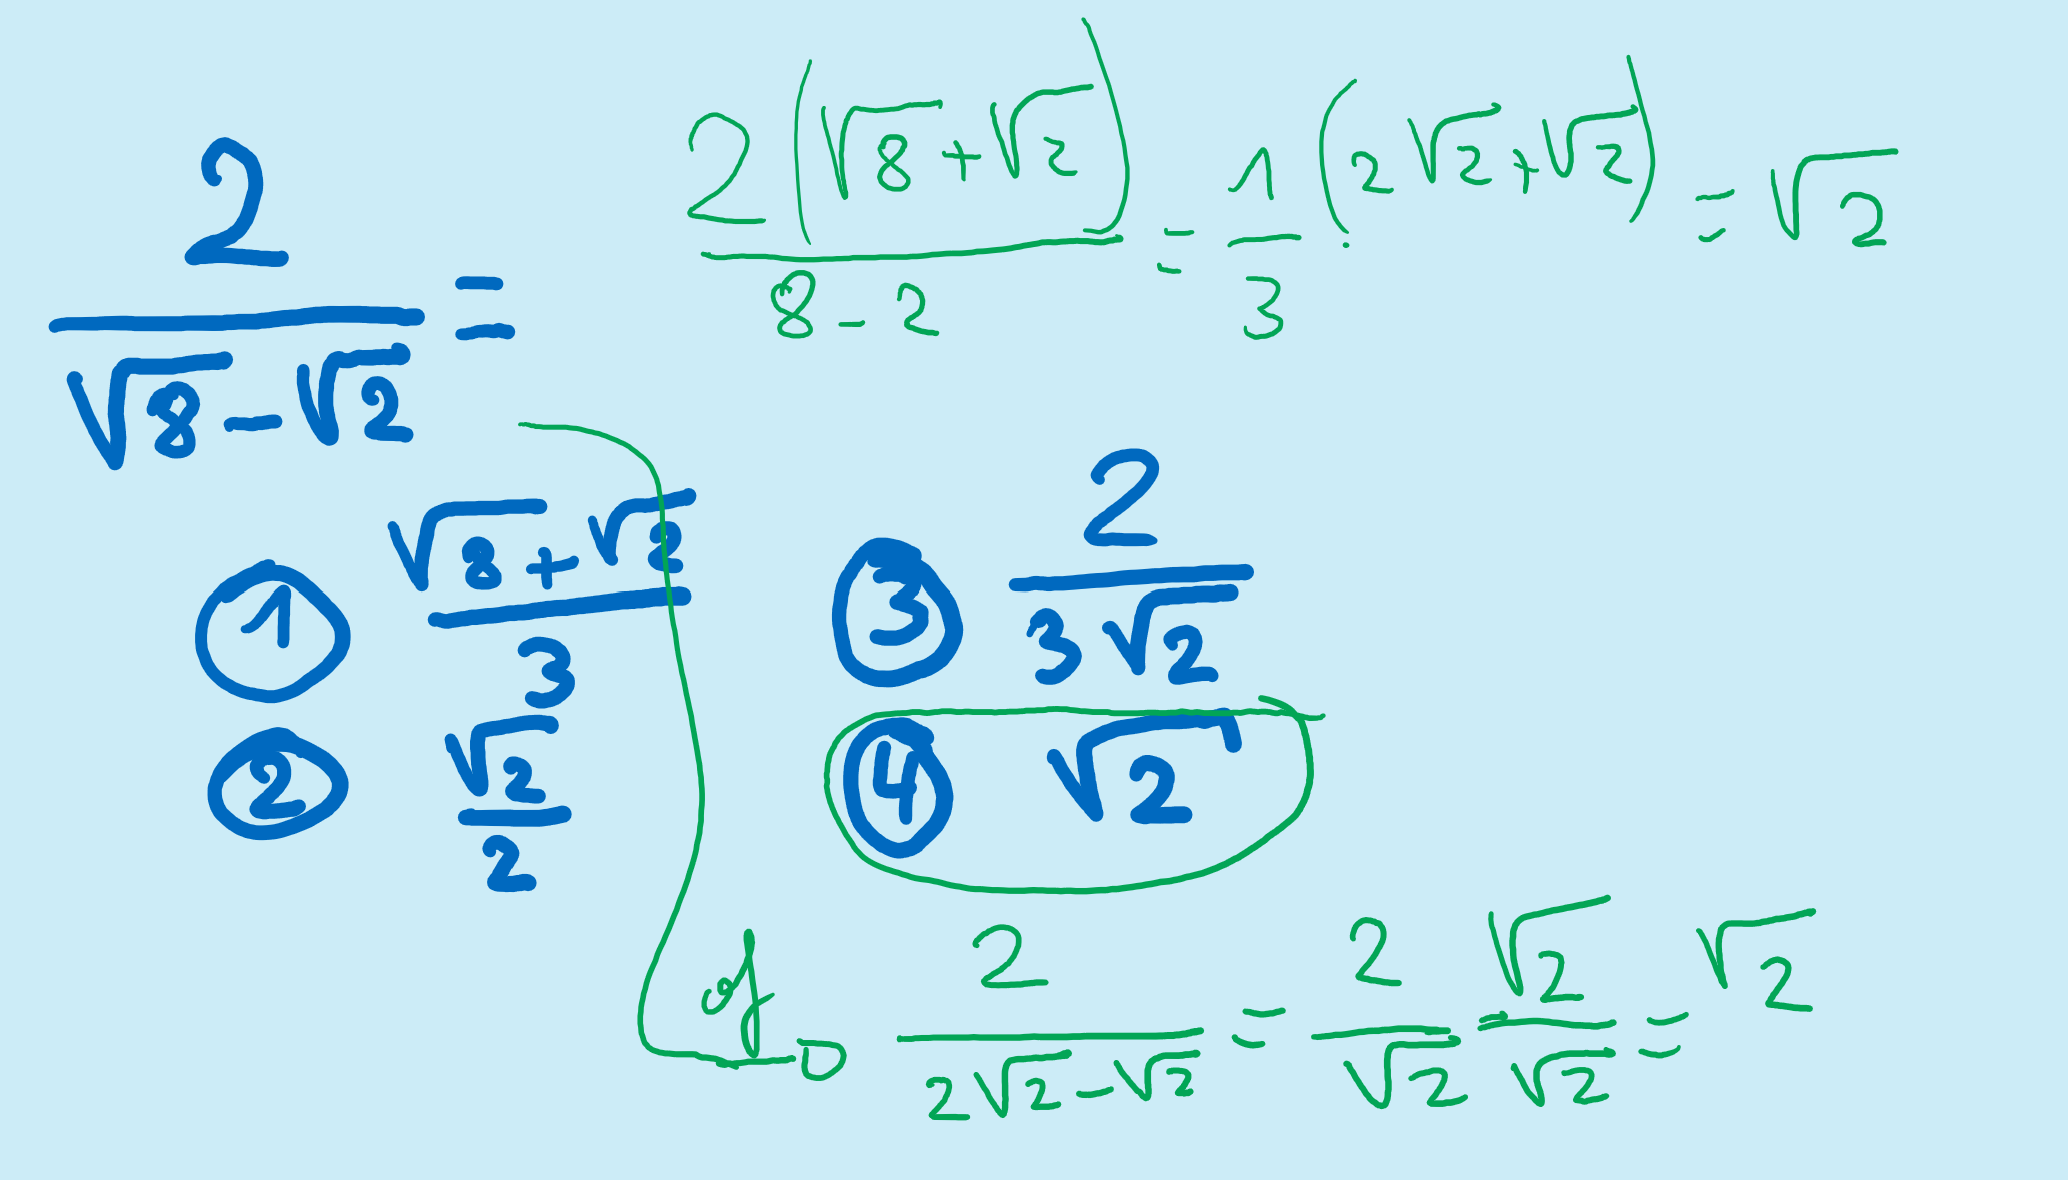 2/(√8-√2) =
2(√8+√2)/(8-2) = 1/3 · (2√2+√2) = √2
① (√8+√2)/3
② √2/2
③ 2/(3√2)
④ √2
of
2/(2√2-√2) = 2/√2 √2/√2 = √2